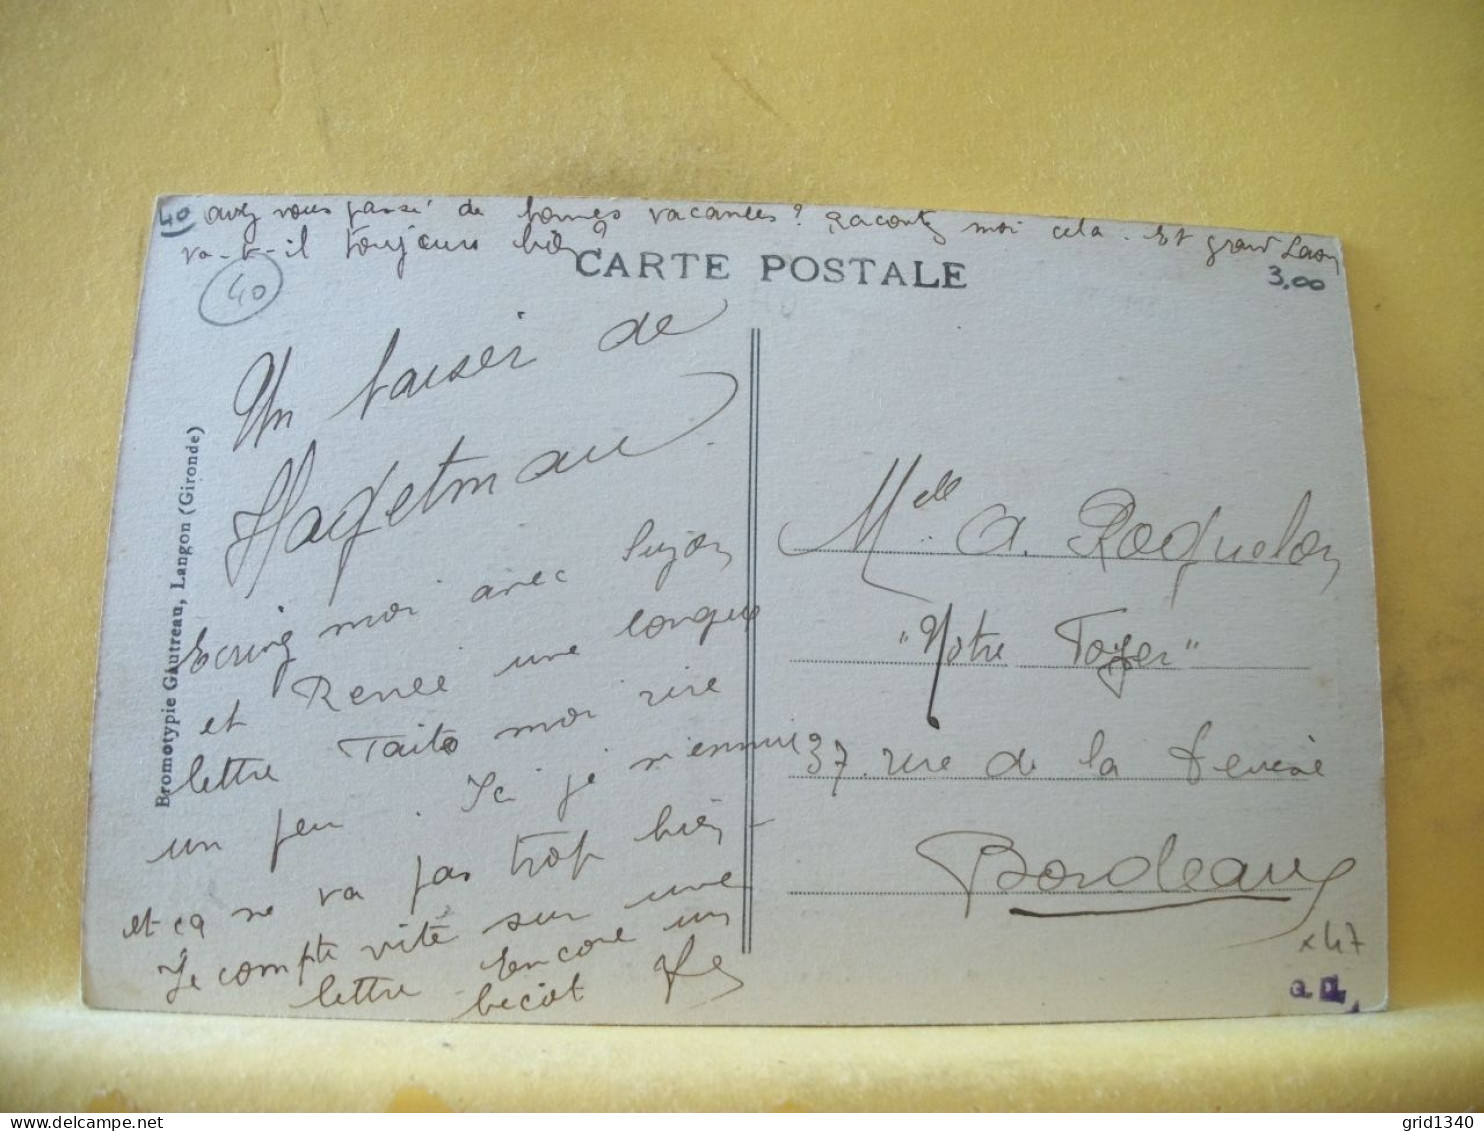 40 avez vous passé de bonnes vacances ? Racontez moi cela. Et grand Léon
va-t-il toujours bien ?
CARTE POSTALE
3,00
40
Un baiser de
Hagetmau.
Ecrivez moi avec Suzon
et Renée une longue
lettre Faites moi rire
un peu. Ici je m'ennuie
et ça ne va pas trop bien
Je compte vite sur une
lettre - Encore un
bécot
Bromotypie Gautreau, Langon (Gironde)
Melle A. Roquelon
"Notre Foyer"
37. rue de la
Bordeaux
x 47
G. D.
grid1340